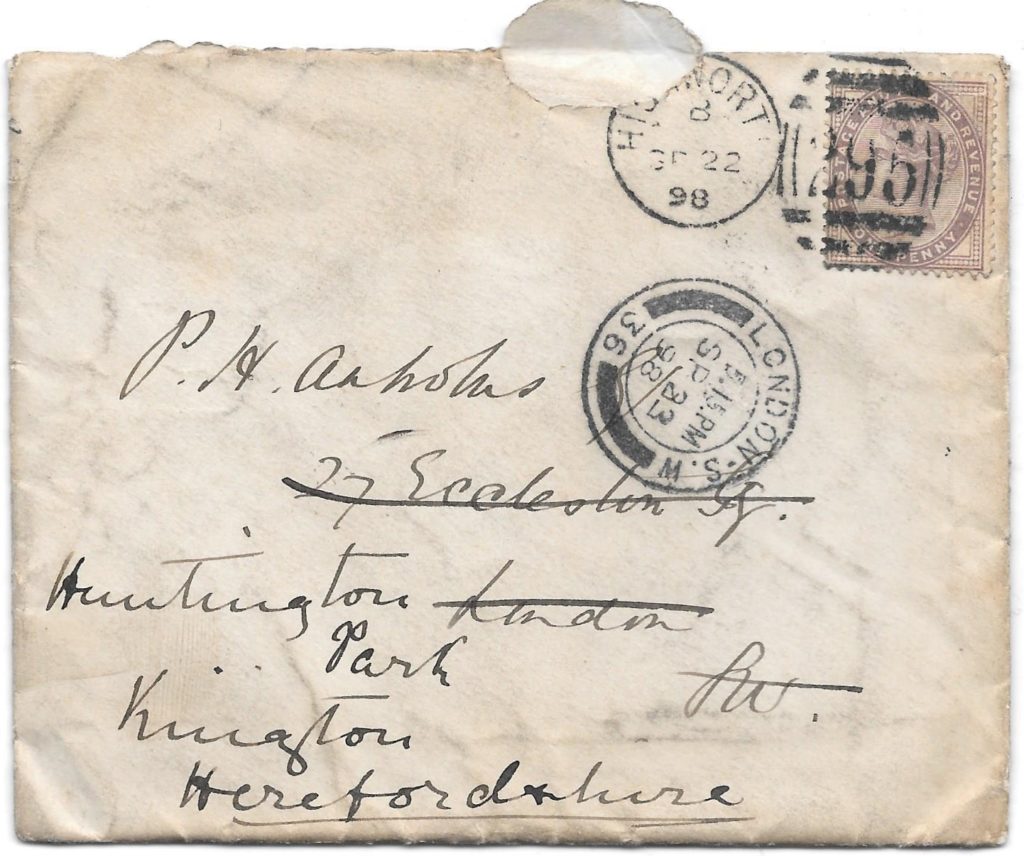 HIGHWORT
B
SP 22
98
POSTAGE AND REVENUE
ONE PENNY
295
LONDON. S.W
5.15.PM
SP 23
98
36
P. H.
77 Eccleston Sq.
Huntington London
Park
S.W.
Kington
Herefordshire